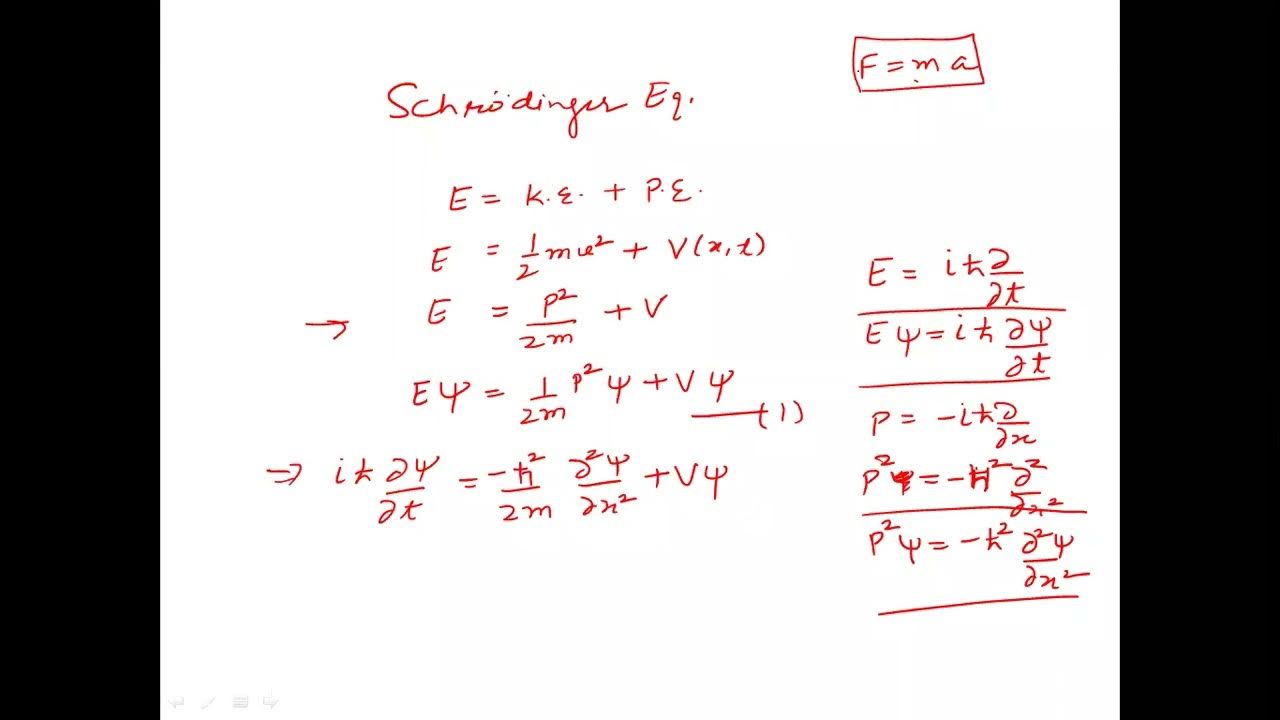 F = m a
Schrödinger Eq.
E = K.E. + P.E.
E = 1/2 mv² + V(x,t)
→ E = P²/2m + V
Eψ = 1/2m P²ψ + Vψ —(1)
⇒ iℏ ∂ψ/∂t = -ℏ²/2m ∂²ψ/∂x² + Vψ
E = iℏ ∂/∂t
Eψ = iℏ ∂ψ/∂t
P = -iℏ ∂/∂x
P² = -ℏ² ∂²/∂x²
P²ψ = -ℏ² ∂²ψ/∂x²